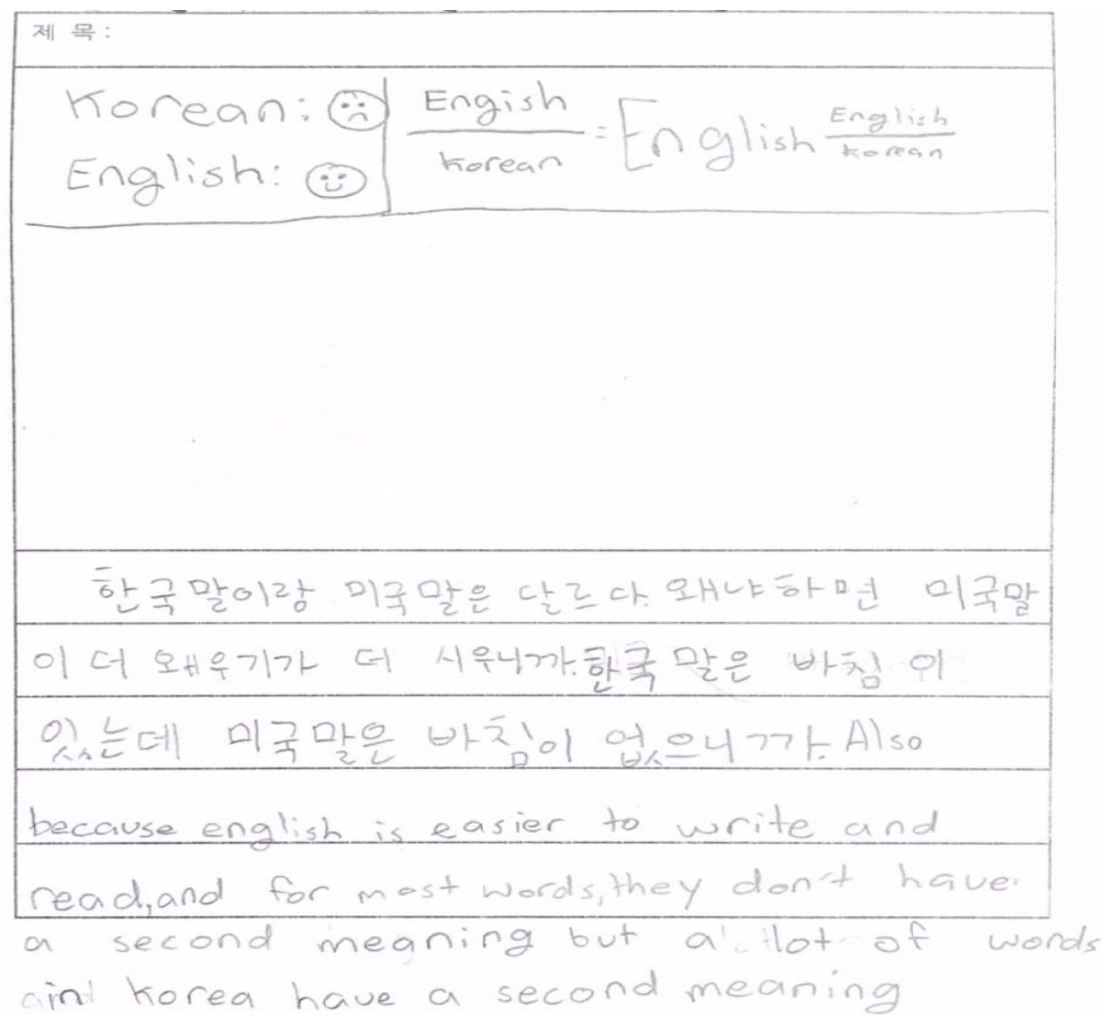 제 목 :
Korean: ☹
English: ☺
Engish / Korean = English English / Korean
한국말이랑 미국말은 달르다. 왜냐하먼 미국말
이 더 왜우기가 더 시우니까. 한국 말은 바침 이
있는데 미국말은 바침이 없으니까. Also
because english is easier to write and
read, and for most words, they don't have
a second meaning but a lot of words
in Korea have a second meaning